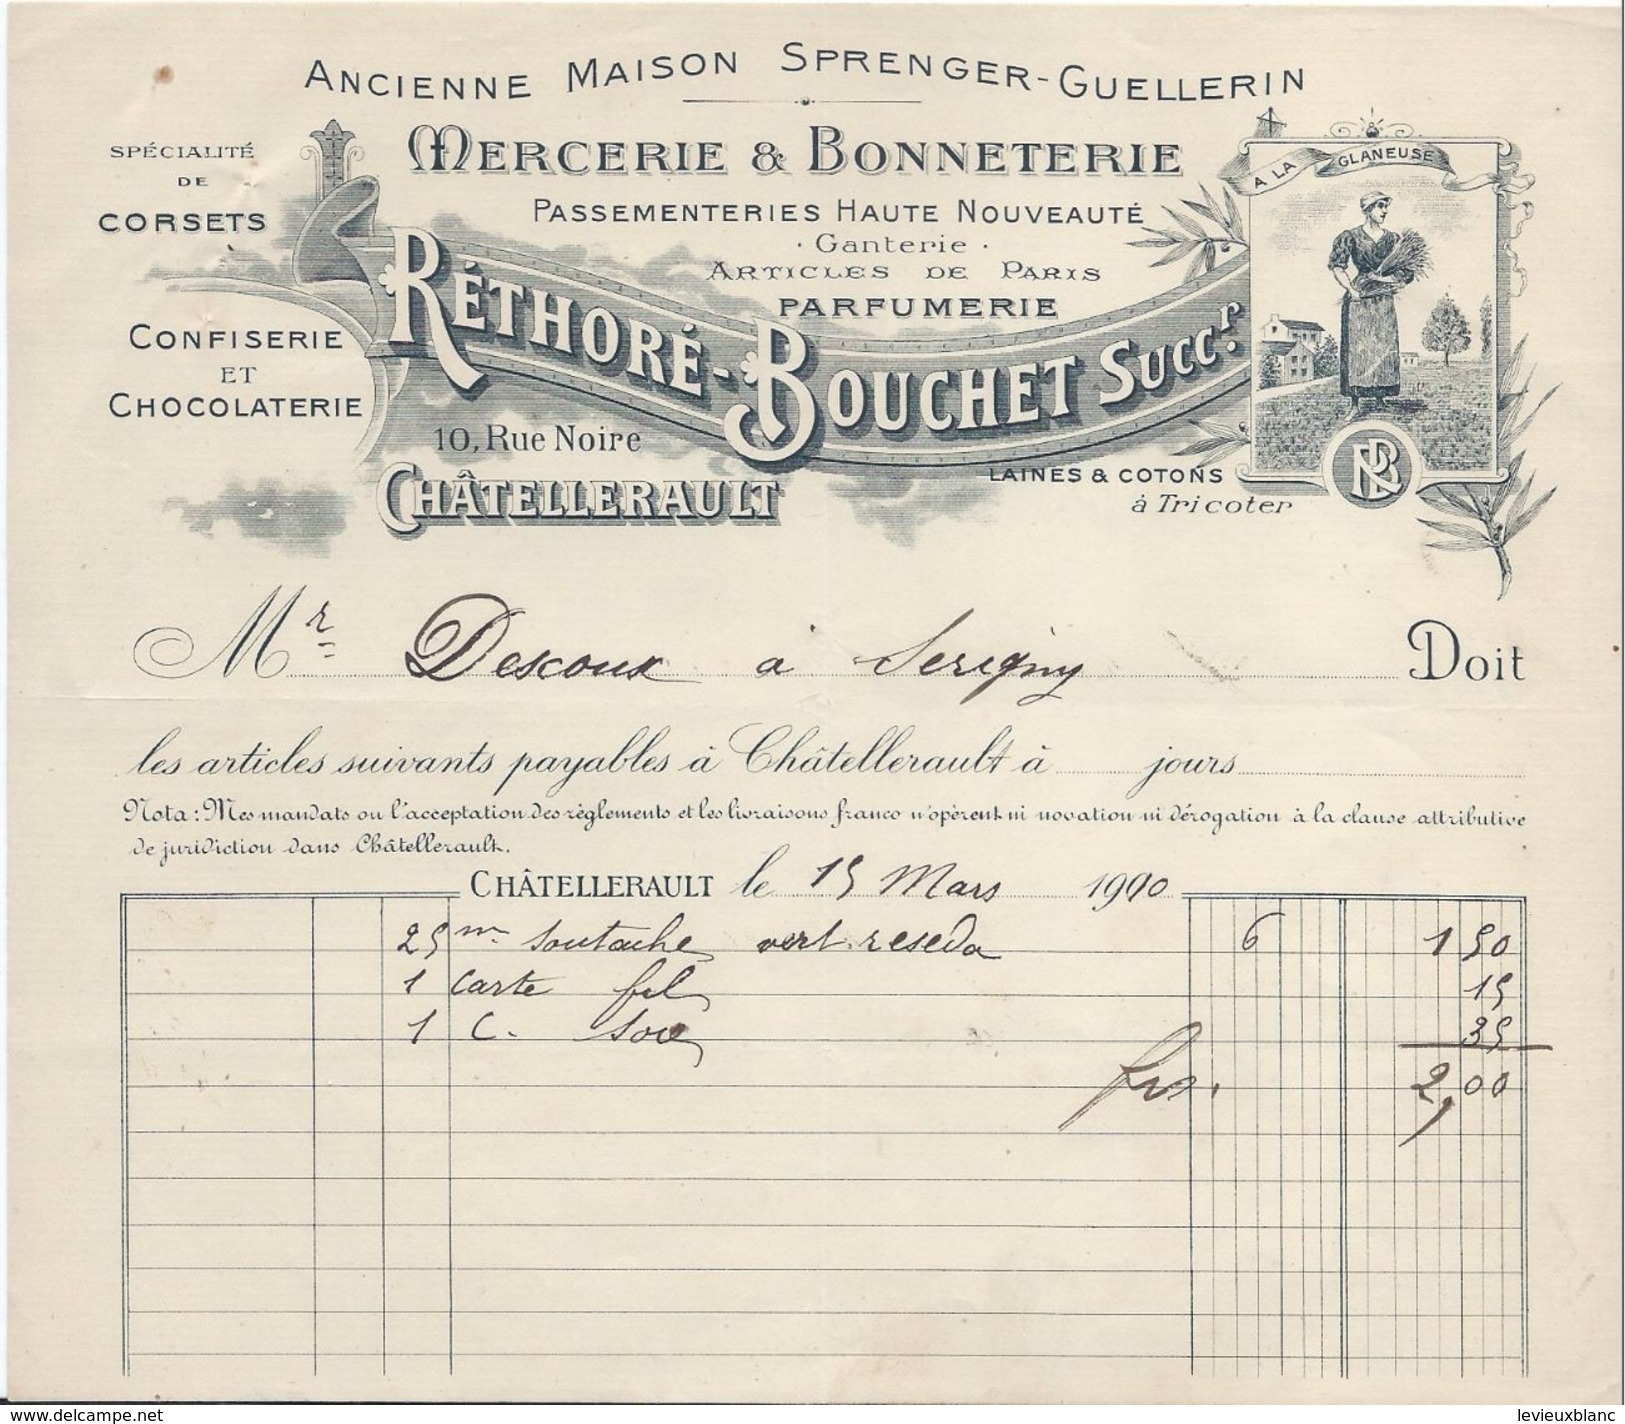 ANCIENNE MAISON SPRENGER-GUELLERIN
SPÉCIALITÉ
DE
CORSETS
MERCERIE & BONNETERIE
PASSEMENTERIES HAUTE NOUVEAUTÉ
· Ganterie ·
ARTICLES DE PARIS
PARFUMERIE
A LA GLANEUSE
CONFISERIE
ET
CHOCOLATERIE
RÉTHORÉ-BOUCHET SUCC.r
10, RUE NOIRE
CHÂTELLERAULT
LAINES & COTONS
à Tricoter
RB
Mr Descoux a Serigny Doit
les articles suivants payables à Châtellerault à jours
Nota : Mes mandats ou l'acceptation des règlements et les livraisons franco n'opèrent ni novation ni dérogation à la clause attributive
de juridiction dans Châtellerault.
CHÂTELLERAULT le 15 Mars 1990
25 m soutache vert reseda 6 1 50
1 carte fil 15
1 C. soie 35
frs. 2,00
levieuxblanc